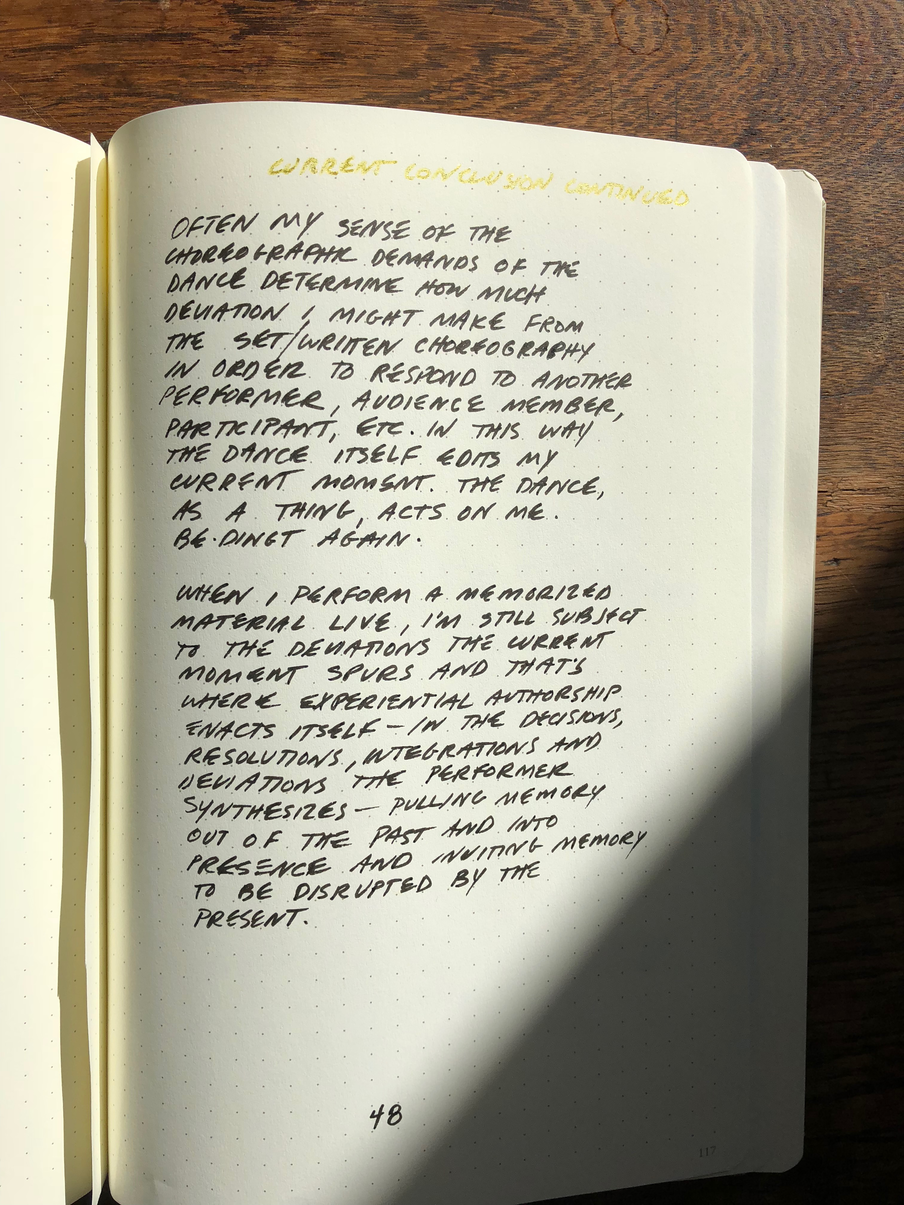 CURRENT CONCLUSION CONTINUED
OFTEN MY SENSE OF THE
CHOREOGRAPHIC DEMANDS OF THE
DANCE DETERMINE HOW MUCH
DEVIATION I MIGHT MAKE FROM
THE SET/WRITTEN CHOREOGRAPHY
IN ORDER TO RESPOND TO ANOTHER
PERFORMER, AUDIENCE MEMBER,
PARTICIPANT, ETC. IN THIS WAY
THE DANCE ITSELF EDITS MY
CURRENT MOMENT. THE DANCE,
AS A THING, ACTS ON ME.
BE·DINGT AGAIN.
WHEN I PERFORM A MEMORIZED
MATERIAL LIVE, I'M STILL SUBJECT
TO THE DEVIATIONS THE CURRENT
MOMENT SPURS AND THAT'S
WHERE EXPERIENTIAL AUTHORSHIP
ENACTS ITSELF — IN THE DECISIONS,
RESOLUTIONS, INTEGRATIONS AND
DEVIATIONS THE PERFORMER
SYNTHESIZES — PULLING MEMORY
OUT OF THE PAST AND INTO
PRESENCE AND INVITING MEMORY
TO BE DISRUPTED BY THE
PRESENT.
48
117